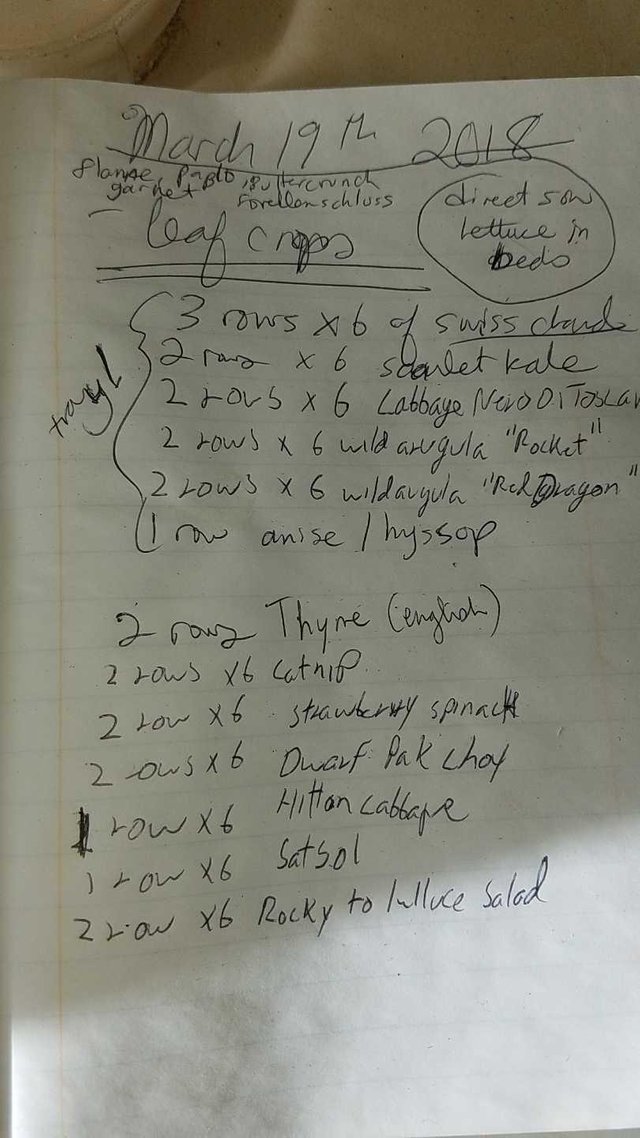 March 19th 2018
flame, Pablo, Buttercrunch
garnet Forellenschluss
direct sow
lettuce in
beds
- leaf crops
tray 1
3 rows x 6 of swiss chard
2 rows x 6 scarlet kale
2 rows x 6 Cabbage Nero Di Toscan
2 rows x 6 wild arugula "Rocket"
2 rows x 6 wild arugula "Red Dragon"
1 row anise / hyssop
2 rows Thyme (english)
2 rows x6 Catnip
2 row x 6 strawberry spinach
2 rows x 6 Dwarf Pak Choy
1 row x 6 Hilton cabbage
1 row x6 Satsol
2 row x6 Rocky to Salad